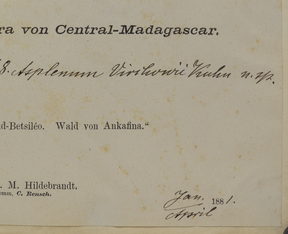 ra von Central-Madagascar.
8. Asplenum Virchowii Kuhn n. sp.
d-Betsiléo. Wald von Ankafina."
. M. Hildebrandt.
mm. C. Rensch.
Jan. 1881.
April